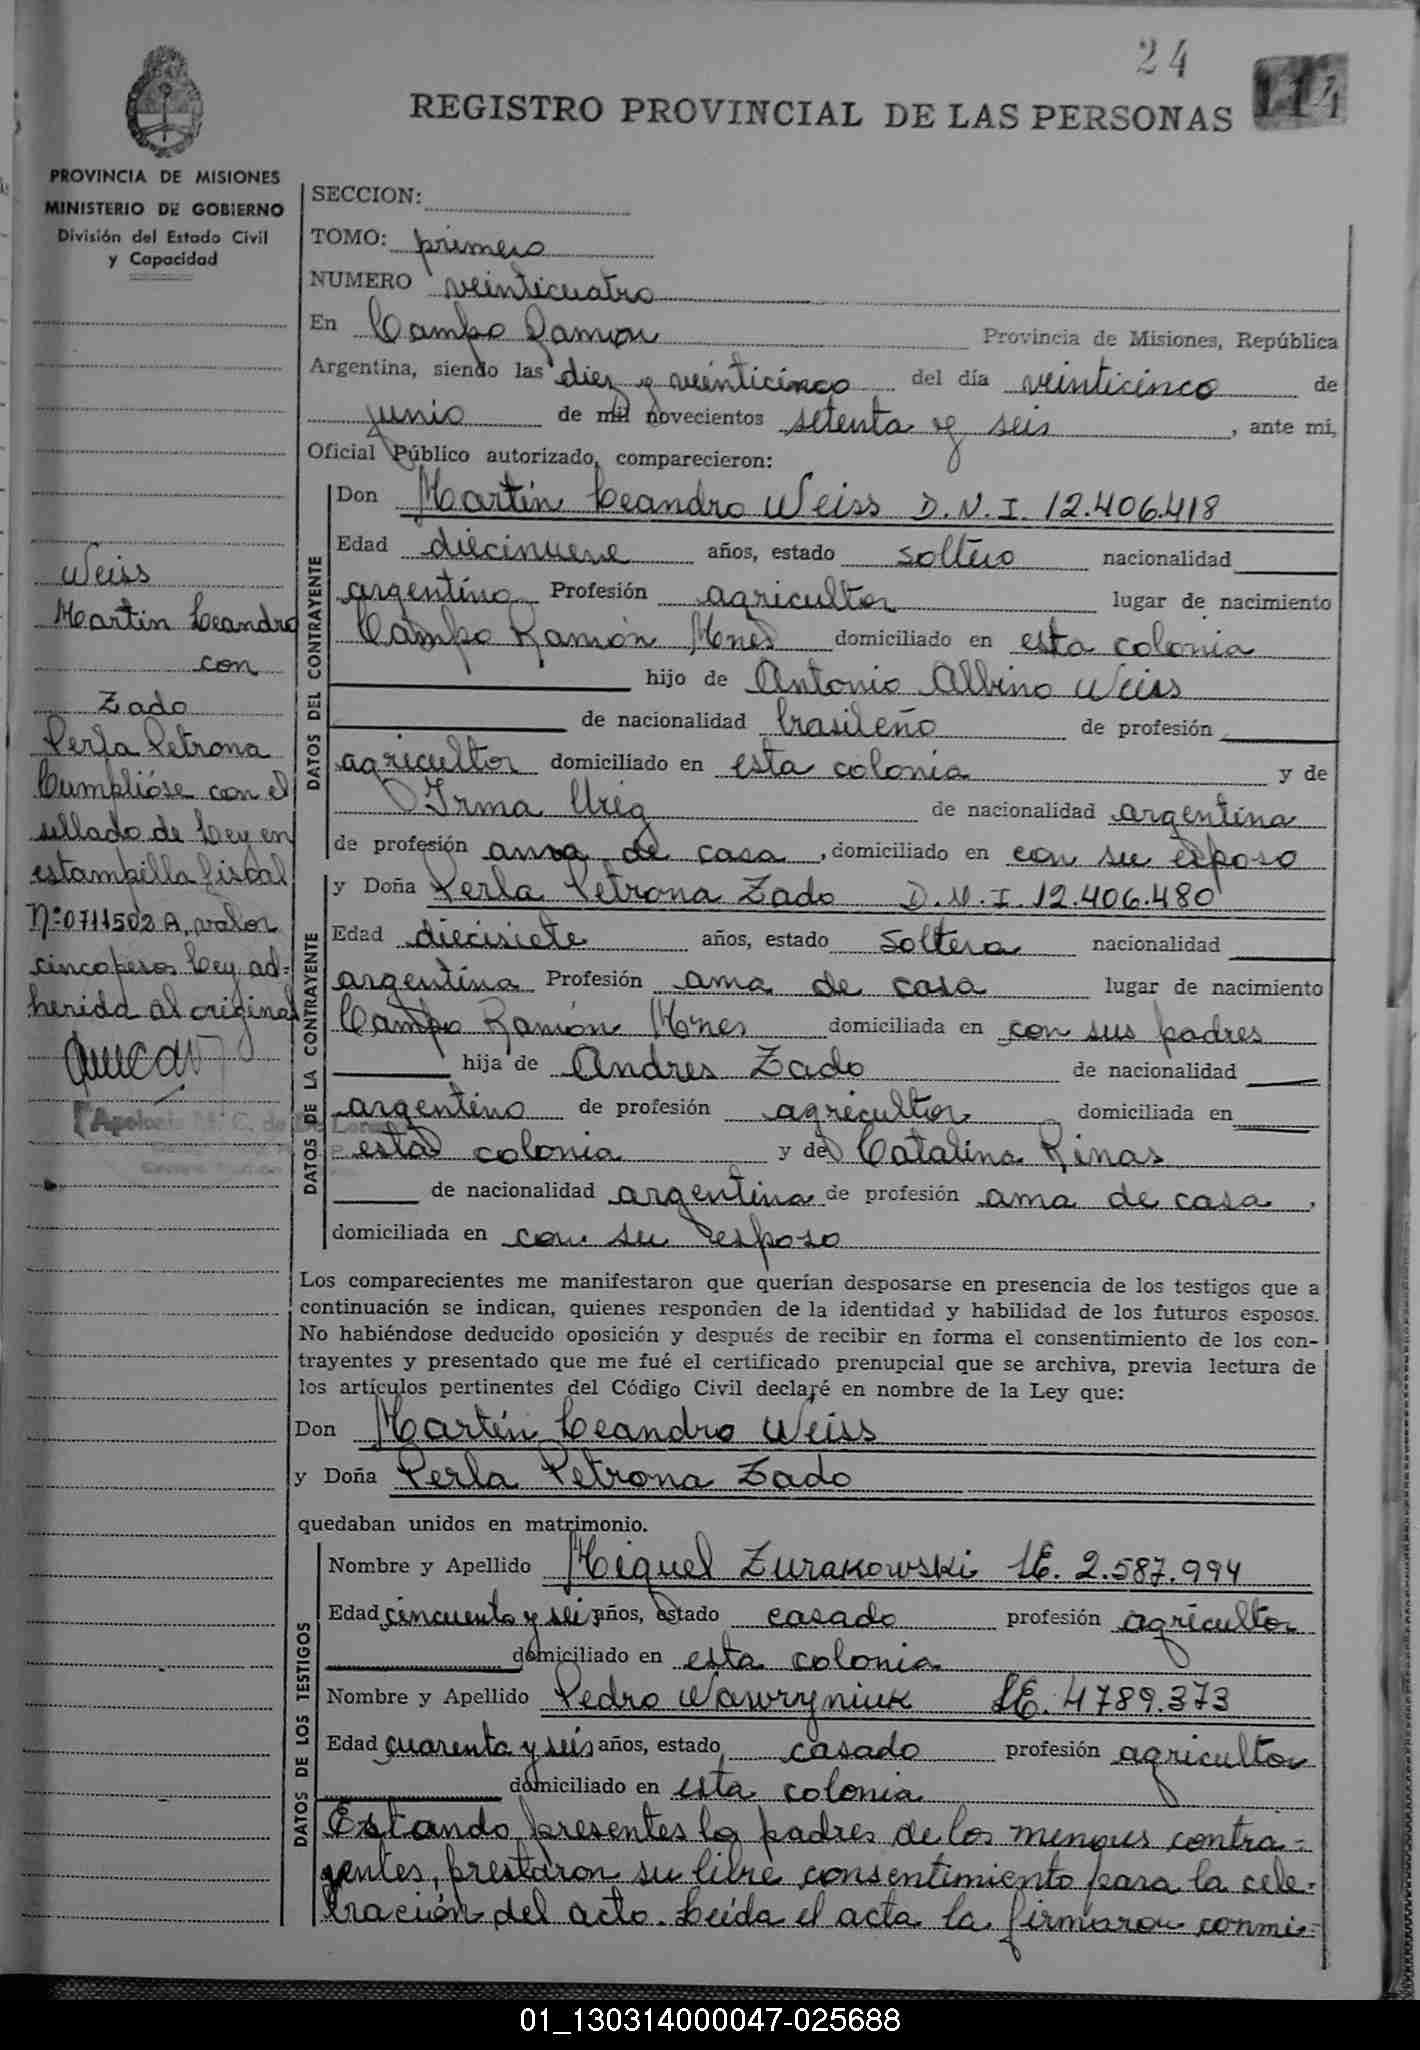 24
114
REGISTRO PROVINCIAL DE LAS PERSONAS
PROVINCIA DE MISIONES
MINISTERIO DE GOBIERNO
División del Estado Civil
y Capacidad
SECCION:
TOMO: primero
NUMERO veinticuatro
En Campo Ramón Provincia de Misiones, República
Argentina, siendo las diez y veinticinco del día veinticinco de
junio de mil novecientos setenta y seis, ante mi,
Oficial Público autorizado, comparecieron:
DATOS DEL CONTRAYENTE
Don Martín Leandro Weiss D.N.I. 12.406.418
Edad diecinueve años, estado soltero nacionalidad
argentino Profesión agricultor lugar de nacimiento
Campo Ramón Mnes domiciliado en esta colonia
hijo de Antonio Albino Weiss
de nacionalidad brasileño de profesión
agricultor domiciliado en esta colonia y de
Irma de nacionalidad argentina
de profesión ama de casa, domiciliado en con su esposo
DATOS DE LA CONTRAYENTE
y Doña Perla Petrona Zado D.N.I. 12.406.480
Edad diecisiete años, estado soltera nacionalidad
argentina Profesión ama de casa lugar de nacimiento
Campo Ramón Mnes domiciliada en con sus padres
hija de Andres Zado de nacionalidad
argentino de profesión agricultor domiciliada en
esta colonia y de Catalina Rinas
de nacionalidad argentina de profesión ama de casa,
domiciliada en con su esposo
Los comparecientes me manifestaron que querían desposarse en presencia de los testigos que a
continuación se indican, quienes responden de la identidad y habilidad de los futuros esposos.
No habiéndose deducido oposición y después de recibir en forma el consentimiento de los con-
trayentes y presentado que me fué el certificado prenupcial que se archiva, previa lectura de
los artículos pertinentes del Código Civil declaré en nombre de la Ley que:
Don Martín Leandro Weiss
y Doña Perla Petrona Zado
quedaban unidos en matrimonio.
DATOS DE LOS TESTIGOS
Nombre y Apellido Miguel Zurakowski LE. 2.587.994
Edad cincuenta y seis años, estado casado profesión agricultor
domiciliado en esta colonia
Nombre y Apellido Pedro Wawryniuk LE. 4789.373
Edad cuarenta y seis años, estado casado profesión agricultor
domiciliado en esta colonia
Estando presentes los padres de los menores contra=
yentes, prestaron su libre consentimiento para la cele-
bración del acto. Leída el acta la firmaron conmi=
Weiss
Martin Leandro
con
Zado
Perla Petrona
Cumplióse con el
sellado de Ley en
estampilla fiscal
Nº 0711502 A, valor
cinco pesos Ley ad=
herida al original
Apolonia M. C. de
01_130314000047-025688